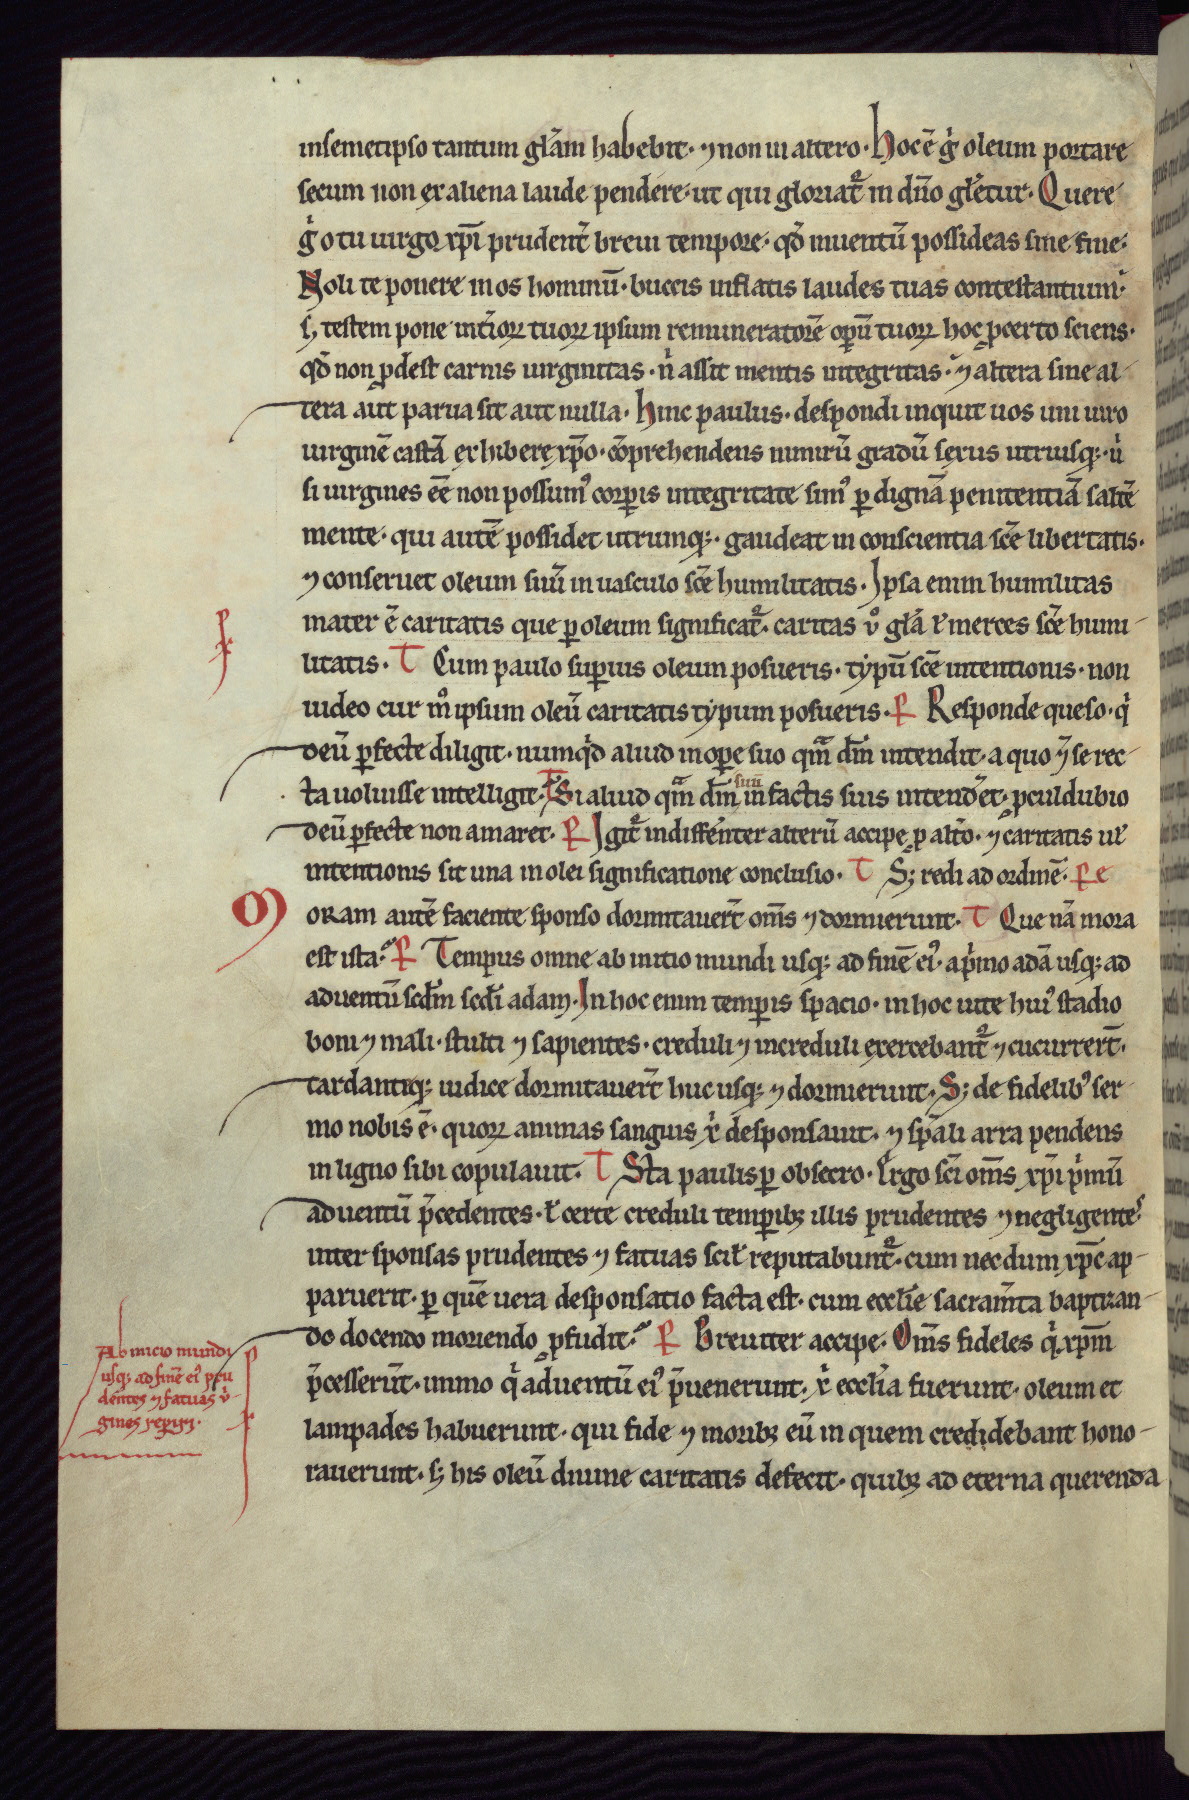 insemetipso tantum gła̅m habebit· ⁊ non in altero· Hoc ē g̾ oleum portare
secum non ex aliena laude pendere· ut qui gloriat᷑ in dn̅o gl̅etur· Quere
g̾ o tu uirgo xp̅i prudent̾ breui tempore· qd̾ inuentū possideas sine fine·
Noli te ponere in os hominū· buccis inflatis laudes tuas contestantium·
sꝫ testem pone int̾ioꝝ tuoꝝ ipsum remuneratorē opū tuoꝝ hoc ꝓcerto sciens·
qd̾ non ꝓdest carnis uirginitas· n̾ assit mentis integritas· ⁊ altera sine al-
tera aut parua sit aut nulla· Hinc paulus· despondi inquit uos uni uiro
uirginē castā exhibere xp̅o· cōprehendens nimirū gradū sexus utriusqꝫ· ut
si uirgines eē non possumꝰ corꝑis integritate simꝰ ꝑ dignā penitentiā saltē
mente· qui autē possidet utrumqꝫ· gaudeat in conscientia sc̅e libertatis·
⁊ conseruet oleum suū in uasculo sc̅e humilitatis· Ipsa enim humilitas
mater ē caritatis que ꝑ oleum significat᷑· caritas u̾o gła̅ ł merces sc̅e humi-
litatis· T Cum paulo suꝑius oleum posueris· typū sc̅e intentionis· non
uideo cur m̊ ipsum oleū caritatis typum posueris· P Responde queso· q̾
deū ꝑfecte diligit· numqͥd aliud in oꝑe suo qm̅ dm̅ intendit· a quo ⁊ se rec-
ta uoluisse intelligit· T Si aliud qm̅ dm̅ in suū factis suis intend̾et· ꝓculdubio
deū ꝑfecte non amaret· P Igit᷑ indiffenter alterū accipe ꝓ alt̾o· ⁊ caritatis ul̾
intentionis sit una in olei significatione conclusio· T Sꝫ redi ad ordinē· Pe
Moram autē faciente sponso dormitauer̅t om̅s ⁊ dormierunt· T Que nā mora
est ista· P Tempus omne ab initio mundi usqꝫ ad finē eiꝰ· a pͥmo adā usqꝫ ad
aduentū scd̅m scd̅i adam· In hoc enim temꝑis spacio· in hoc uite huiꝰ stadio
boni ⁊ mali· stulti ⁊ sapientes· creduli ⁊ increduli exercebant᷑ ⁊ cucurrer̅t·
tardantiqꝫ iudice dormitauer̅t huc usqꝫ ⁊ dormierunt· Sꝫ de fidelibꝰ ser-
mo nobis ē· quoꝝ animas sanguis x̾ desponsauit· ⁊ sp̅ali arra pendens
in ligno sibi copulauit· T Sta paulisꝑ obsecro· Ergo sc̅i om̅s xp̅i pͥmū
aduentū p̅cedentes· ł certe creduli temꝑibꝫ illis prudentes ⁊ negligentes
inter sponsas prudentes ⁊ fatuas scił reputabunt᷑· cum necdum xp̅c ap-
paruerit· ꝑ quē uera desponsatio facta est· cum eccl̅ie sacram̅ta baptizan-
do docendo moriendo ꝓfudit· P Breuiter accipe· Om̅s fideles qͥ xp̅m
p̅cesserūt· immo qͥ aduentū eiꝰ p̅uenerunt· x̾ eccl̅ia fuerunt· oleum et
lampades habuerunt· qui fide ⁊ moribꝫ eū in quem credidebant hono-
rauerunt· sꝫ his oleū diuine caritatis defecit· quibꝫ ad eterna querenda
Ab inicio mundi
usqꝫ ad finē eiꝰ pru
dentes ⁊ fatuas uͥ
gines reꝑiri·